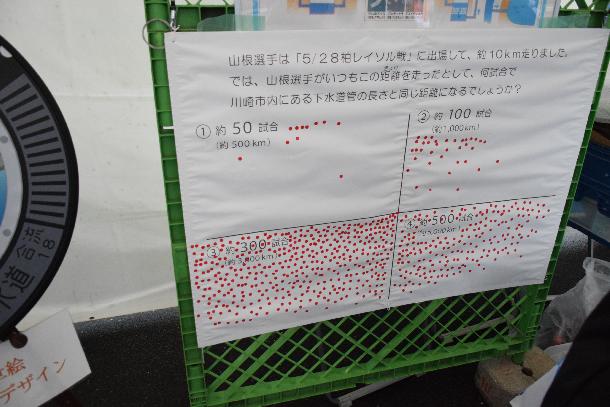 山根選手は「5/28柏レイソル戦」に出場して、約10km走りました。
では、山根選手がいつもこの距離を走ったとして、何試合で
川崎市内にある下水道管の長さと同じ距離になるでしょうか？
① 約50試合
（約500km）
② 約100試合
（約1,000km）
③ 約300試合
④ 約500試合
水道
合流
18
絵
デザイン